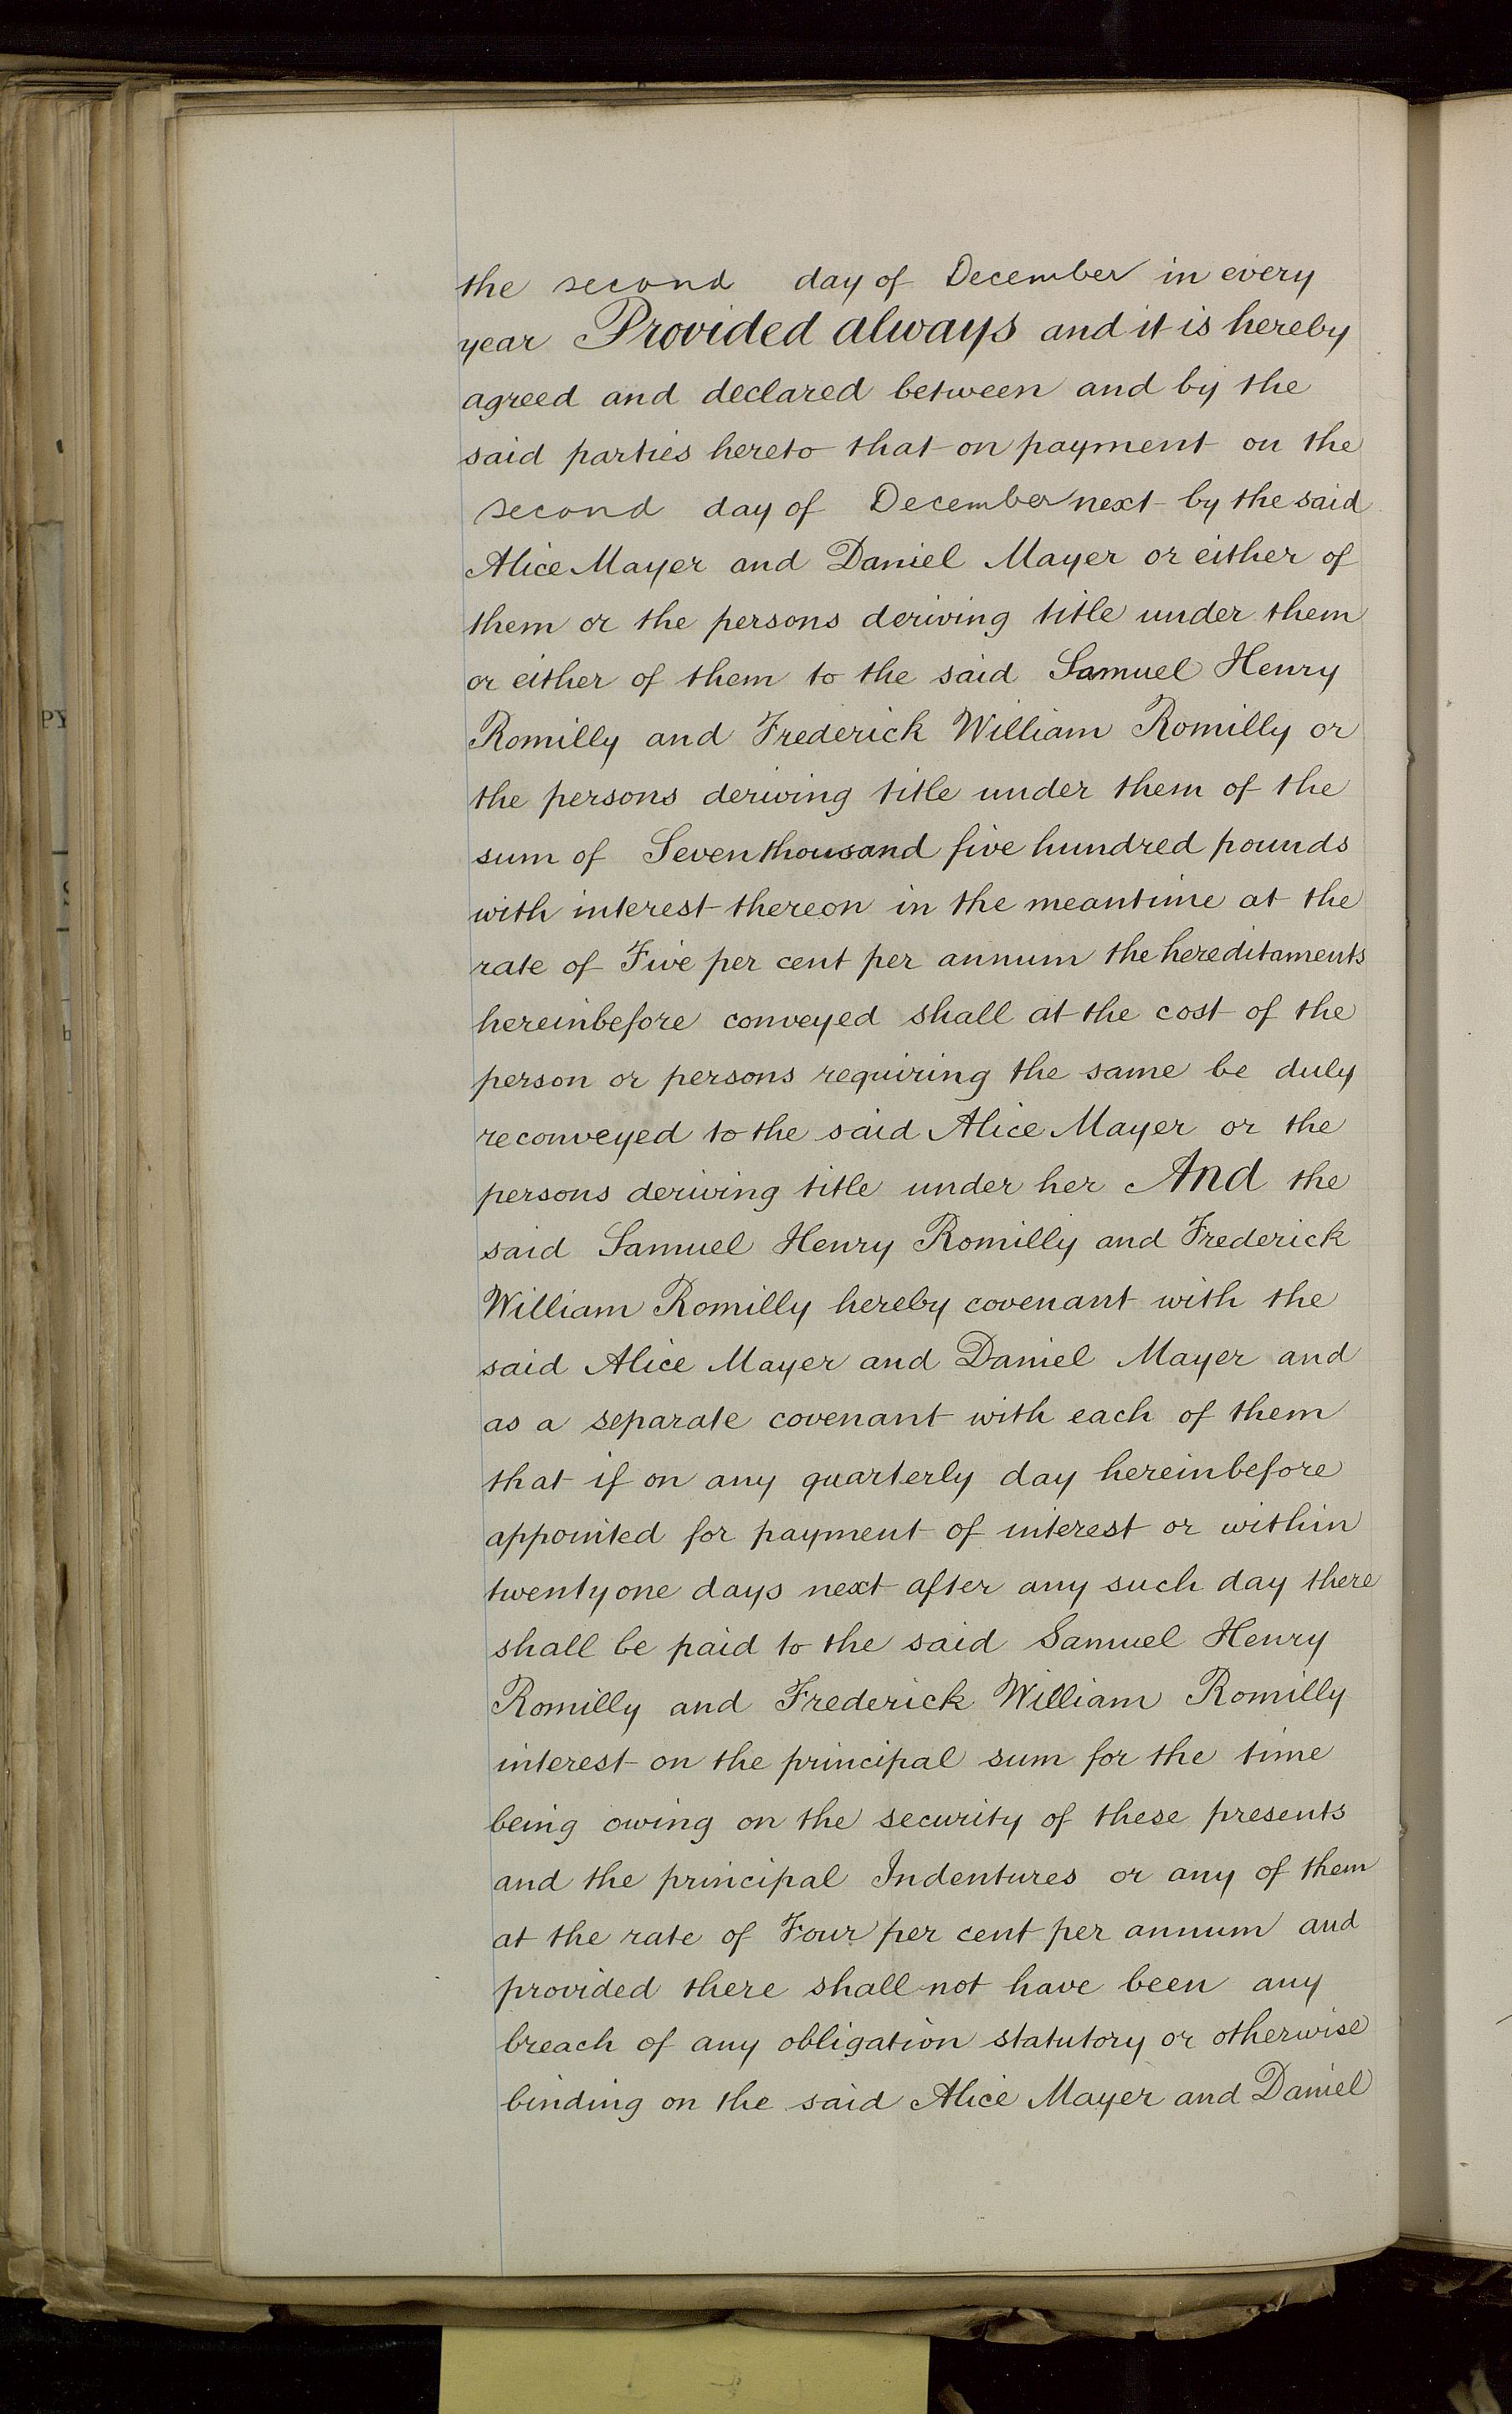 the second day of December in every
year Provided always and it is hereby
agreed and declared between and by the
said parties hereto that on payment on the
second day of December next by the said
Alice Mayer and Daniel Mayer or either of
them or the persons deriving title under them
or either of them to the said Samuel Henry
Romilly and Frederick William Romilly or
the persons deriving title under them of the
sum of Seven thousand five hundred pounds
with interest thereon in the meantime at the
rate of Five per cent per annum the hereditaments
hereinbefore conveyed shall at the cost of the
person or persons requiring the same be duly
reconveyed to the said Alice Mayer or the
persons deriving title under her And the
said Samuel Henry Romilly and Frederick
William Romilly hereby covenant with the
said Alice Mayer and Daniel Mayer and
as a separate covenant with each of them
that if on any quarterly day hereinbefore
appointed for payment of interest or within
twenty one days next after any such day there
shall be paid to the said Samuel Henry
Romilly and Frederick William Romilly
interest on the principal sum for the time
being owing on the security of these presents
and the principal Indentures or any of them
at the rate of Four per cent per annum and
provided there shall not have been any
breach of any obligation statutory or otherwise
binding on the said Alice Mayer and Daniel